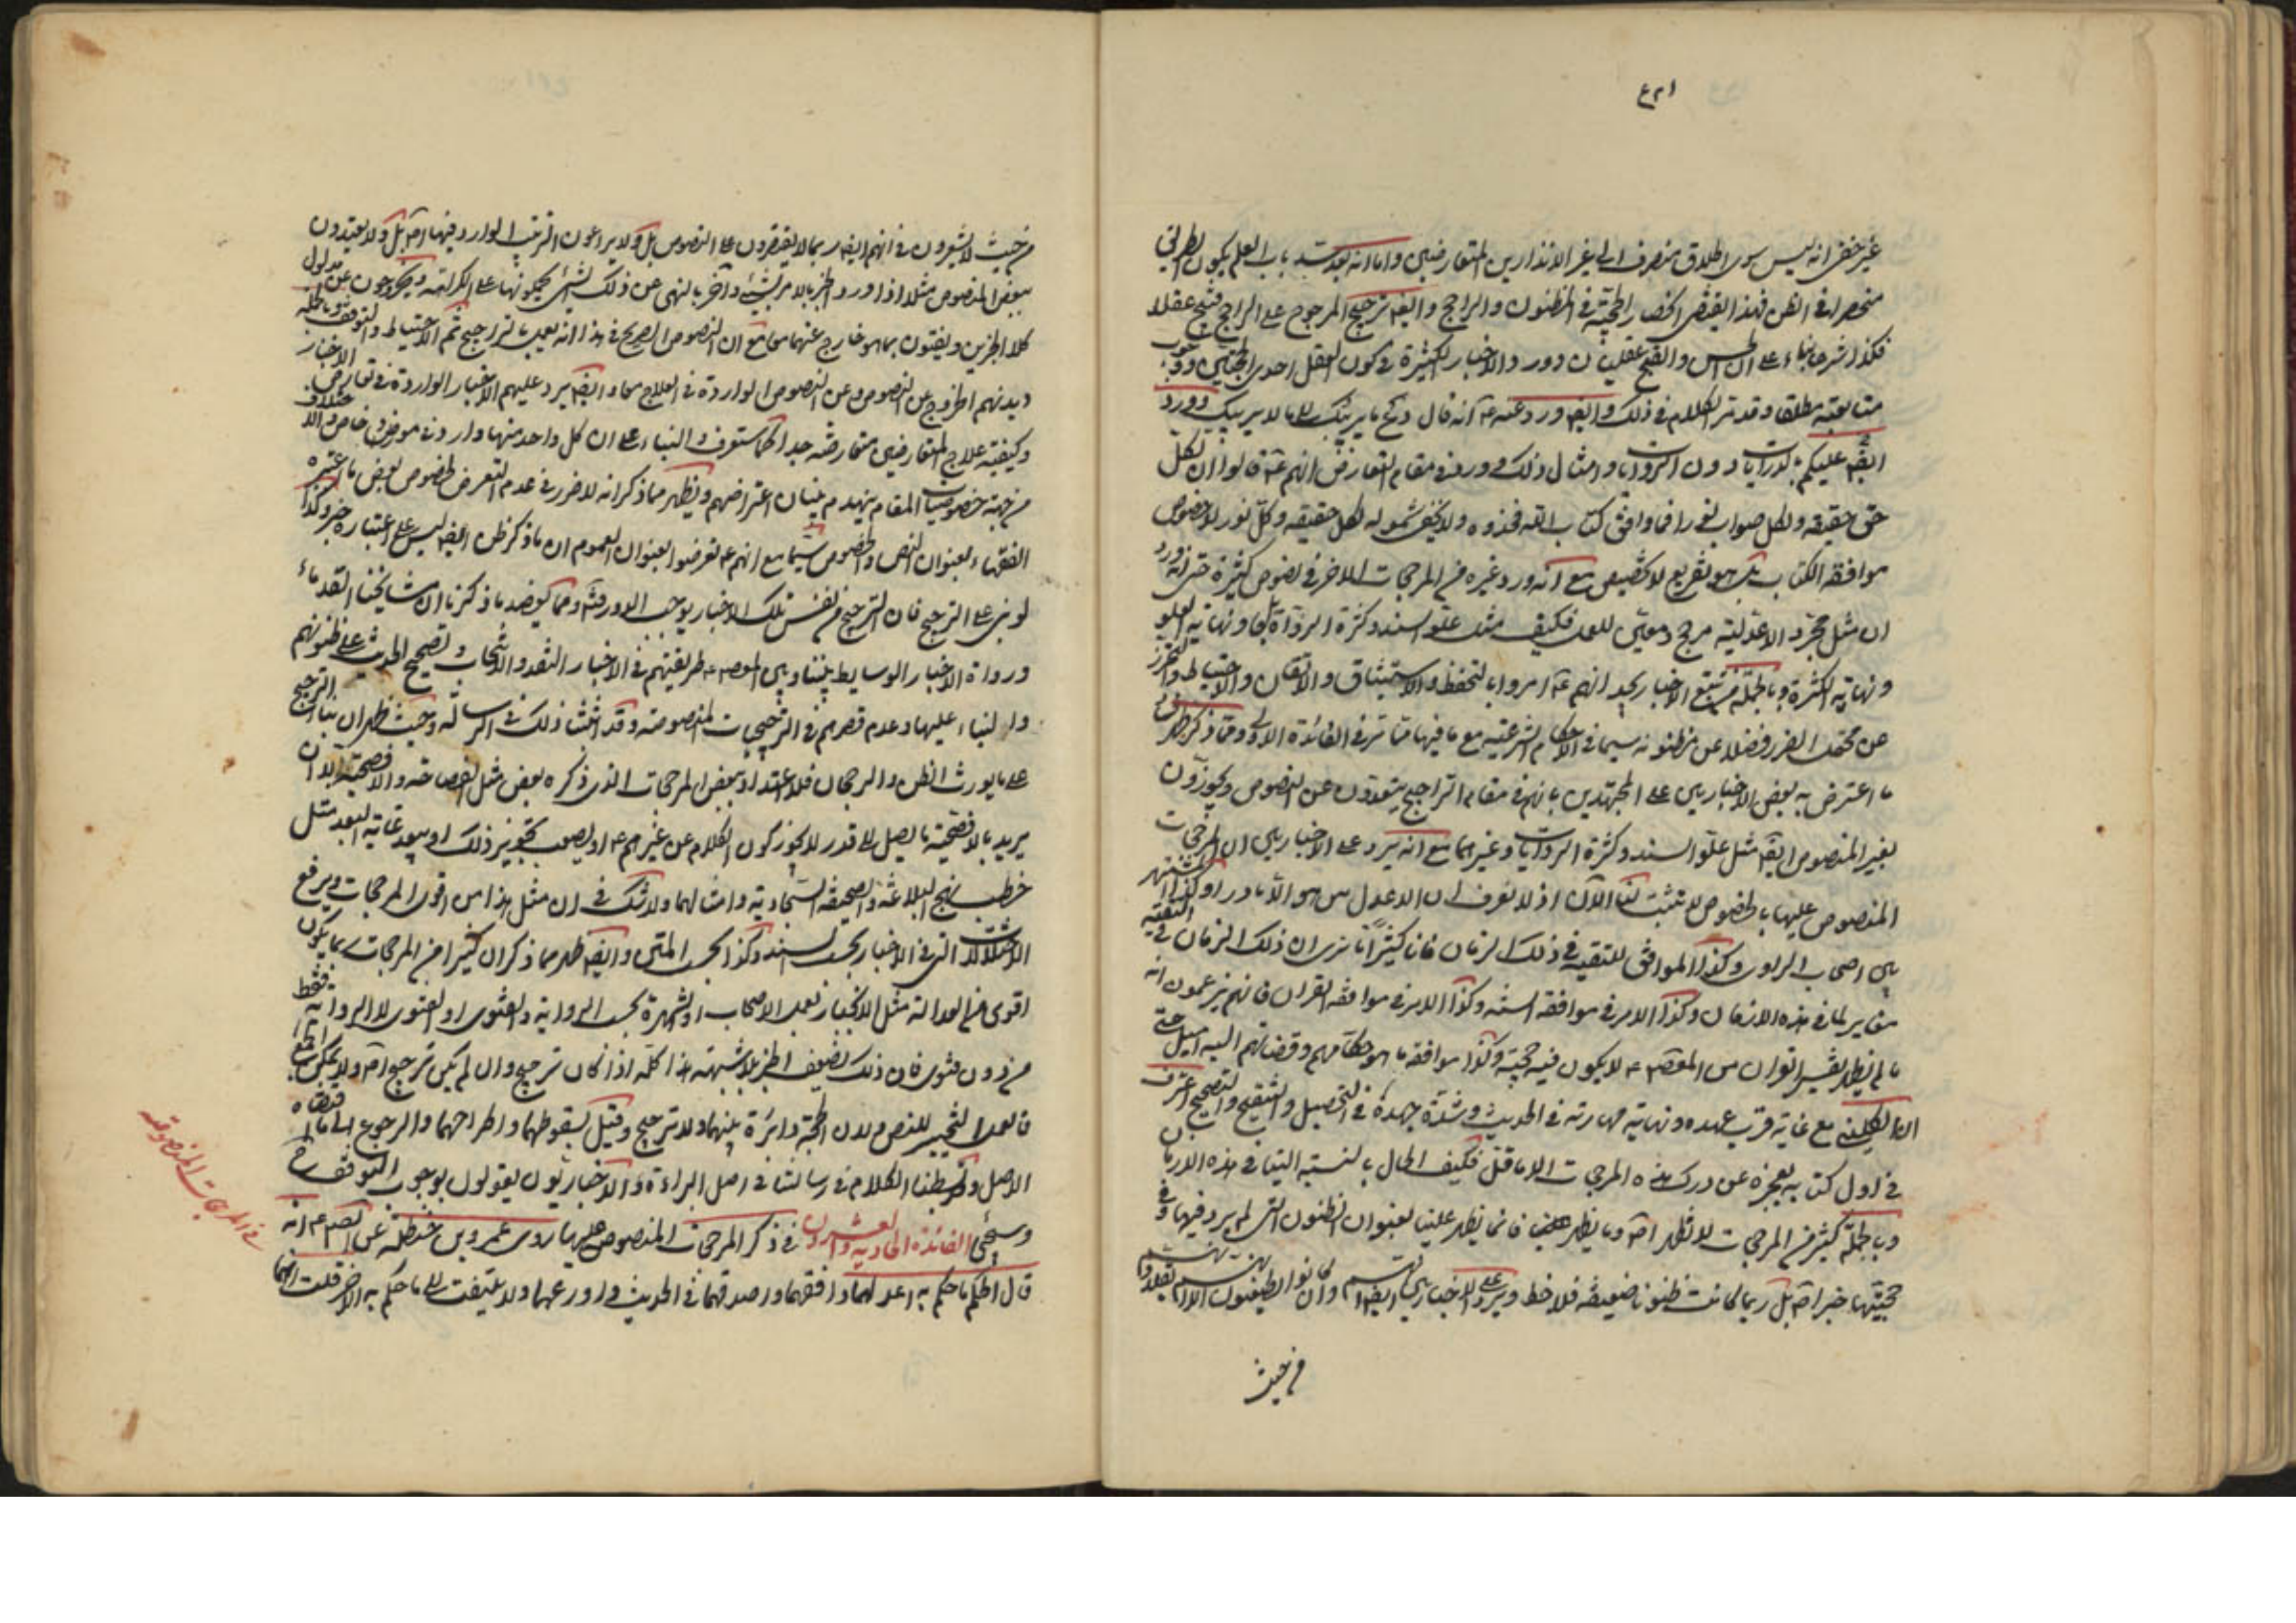 ٤٢١
غير خفي انه ليس سوى اطلاق منصرف الى غير الانذارين المتعارضين واما انه بعد سد باب العلم يكون الطريق
منحصرا في الظن فهذا يقتضي انحصار الحجية في المظنون والراجح وايضا ترجيح المرجوح على الراجح قبيح عقلا
فكذا شرعا بناء على ان الحسن والقبح عقليان ورد والاخبار الكثيرة في كون العقل احدى الحجتين ووجوب
متابعته مطلقا وقد مر الكلام في ذلك وايضا ورد عنه ع انه قال دع ما يريبك الى ما لا يريبك وورد
ايضا عليكم بالدرايات دون الروايات وامثال ذلك وورد في مقام التعارض انهم ع قالوا ان لكل
حق حقيقة ولكل صواب نورا فما وافق كتاب الله فخذوه ولا يخفى شموله لكل حقيقة وكل نور لا خصوص
موافقة الكتاب بل هو تفريع لا تخصيص مع انه ورد غيره من المرجحات الاخر في نصوص كثيرة حتى انه ورد
ان مثل مجرد الاعدلية مرجح ومعين للعمل فكيف مثل علو السند وكثرة الرواة بل ونهاية العلو
ونهاية الكثرة وبالجملة من تتبع الاخبار يجد انهم ع امروا بالتحفظ والاستيثاق والاتقان والاحتياط والتحرز
عن محتمل الضرر فضلا عن مظنونه سيما في الاحكام الشرعية مع ما فيها مما مر في الفائدة الاولى ومما ذكر ظهر
ما اعترض به بعض الاخباريين على المجتهدين بانهم في مقام التراجيح يتعدون عن النصوص ويجوزون
بغير المنصوص ايضا مثل علو السند وكثرة الروايات وغيرهما مع انه يرد على الاخباريين ان المرجحات
المنصوص عليها بالخصوص لا تثبت لنا الآن اذ لا نعرف ان الاعدل من هو الا نادرا وكذا المشتهر
بين اصحاب الراوي وكذا الموافق للتقية في ذلك الزمان فانا كثيرا ما نرى ان ذلك الزمان في التقية
مغاير لما في هذه الازمان وكذا الامر في موافقة السنة وكذا الامر في موافقة القران فانهم يزعمون انه
ما لم يظهر تفسير القران من المعصوم ع لا يكون فيه حجية وكذا موافقة ما هو حكامهم وقضاتهم اليه اميل حتى
ان الكليني مع غاية قرب عهده ونهاية مهارته في الحديث وشدة جهده في التحصيل والتنقيح والتصحيح اعترف
في اول كتابه بعجزه عن درك هذه المرجحات الا ما قل فكيف الحال بالنسبة الينا في هذه الازمان
وبالجملة كثير من المرجحات لا تظهر اصلا وما يظهر منها فانما يظهر علينا بعنوان الظنون التي لم يرد فيها وفي
حجيتها خبر اصلا بل ربما كانت ظنونا ضعيفة فلا حظ ويرد على الاخباريين ايضا
من حيث
من حيث لا يشعرون في انهم ايضا ربما لا يقتصرون على النصوص بل ولا يراعون الترتيب الوارد فيها اصلا بل ولا يعتدون
ببعض المنصوص مثلا اذا ورد الخبر بالامر بشيء وآخر بالنهي عن ذلك الشيء يحكمون بانها على الكراهة ويخرجون عن مدلول
كلا الخبرين ويفتون بما هو خارج عنهما معا مع ان النصوص الصريح في هذا انه يعمل بالترجيح ثم الاحتياط والتوقف وبالجملة
ديدنهم الخروج عن النصوص وعن النصوص الواردة في العلاج معا وايضا يرد عليهم الاخبار الواردة في تعارض الاخبار
وكيفية علاج المتعارضين متعارضة جدا كما ستعرف والبناء على ان كل واحد منها وارد في موضع خاص والاختلاف
من جهة خصوصيات المقام ينهدم بنيان اعتراضهم ويظهر مما ذكر انه لا ضرر في عدم التعرض لخصوص بعض ما اعتبره
الفقهاء بعنوان النص والخصوص سيما مع انهم ع تعرضوا بعنوان العموم ان ما ذكر ظن ايضا ليس على اعتباره خبر وكذا
لو بنى على الترجيح فان الترجيح من نفس تلك الاخبار يوجب الدور قد ومما يعضد ما ذكرنا ان مشايخنا القدماء
ورواة الاخبار الوسايط بيننا وبين المعصوم ع طريقتهم في الاخبار النقد والانتخاب وتصحيح الحديث على ظنونهم
والبناء عليها وعدم قصرهم في الترجيحات المنصوصة وقد اثبتنا ذلك في الرسالة وحيث ظهر ان بناء الترجيح
على ما يورث الظن والرجحان فلا اعتداد ببعض المرجحات الذي ذكره بعض مثل الفصاحة والافصحية الا ان
يريد بالافصحية ما يصل الى قدر لا يجوز كون الكلام عن غيرهم ع او يصعب تجويز ذلك او يبعد غاية البعد مثل
خطب نهج البلاغة والصحيفة السجادية وامثالهما ولا شك في ان مثل هذا من اقوى المرجحات ويرفع
الاختلالات التي في الاخبار بحسب السند وكذا بحسب المتن وايضا ظهر مما ذكر ان كثيرا من المرجحات ربما يكون
اقوى من العدالة مثل الانجبار بعمل الاصحاب او الشهرة بحسب الرواية والفتوى او الفتوى لا الرواية فقط
من دون فتوى فان ذلك تضعيف الخبر بلا شبهة هذا كله اذا كان ترجيح وان لم يكن ترجيح اصلا ولا يمكن الجمع
فالعمل التخيير للنص ولان الحجة دائرة بينهما ولا ترجيح وقيل بسقوطهما واطراحهما والرجوع الى ما اقتضاه
الاصل وقد بسطنا الكلام في رسالتنا في اصل البراءة والاخباريون يقولون بوجوب التوقف ح
وسيجيء الفائدة الحادية والعشرون في ذكر المرجحات المنصوص عليها روى عمرو بن حنظلة عن الصم ع انه
قال الحكم ما حكم به اعدلهما وافقههما واصدقهما في الحديث واورعهما ولا يلتفت الى ما حكم به الاخر قلت انهما
في المرجحات المنصوصة